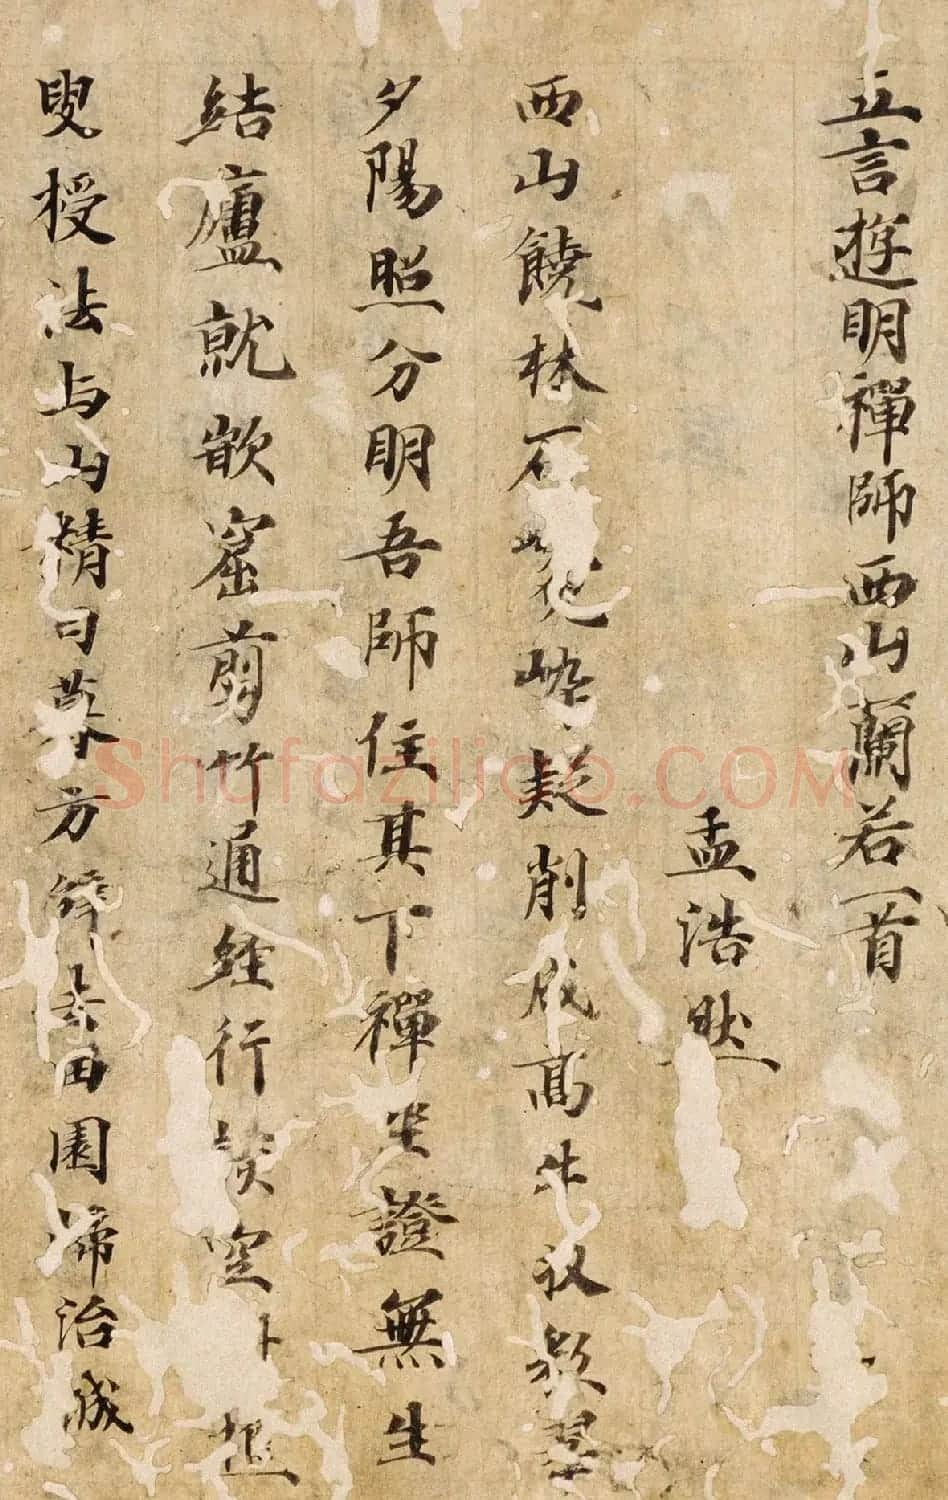 五言遊明禪師西山蘭若一首
孟浩然
西山饒林石崪疑削成高
夕陽照分明吾師住其下禪坐證無生
結廬就嵌窟翦竹通經行談空
叟授法与山精日暮方辤去田園歸治城
Shufaziliao.COM